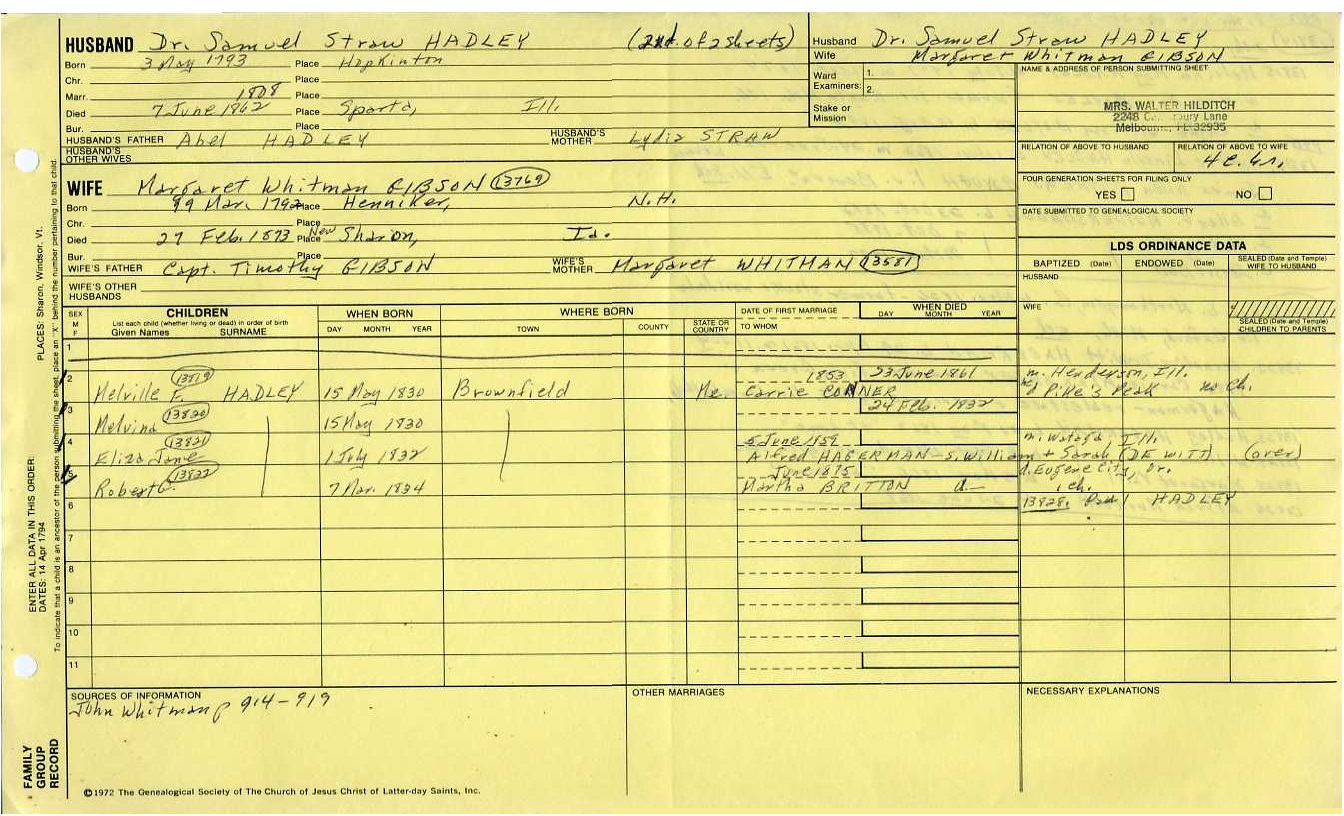 HUSBAND Dr. Samuel Straw HADLEY (2nd. of 2 sheets)
Born 3 May 1793 Place Hopkinton
Chr. Place
Marr. 1808 Place
Died 7 June 1862 Place Sparta, Ill.
Bur. Place
HUSBAND'S FATHER Abel HADLEY HUSBAND'S MOTHER Lydia STRAW
HUSBAND'S OTHER WIVES
Husband Dr. Samuel Straw HADLEY
Wife Margaret Whitman GIBSON
Ward Examiners: 1.
2.
Stake or Mission
NAME & ADDRESS OF PERSON SUBMITTING SHEET
MRS. WALTER HILDITCH
2248 Lane
Melbourne, FL 32935
RELATION OF ABOVE TO HUSBAND RELATION OF ABOVE TO WIFE
FOUR GENERATION SHEETS FOR FILING ONLY
YES NO
DATE SUBMITTED TO GENEALOGICAL SOCIETY
WIFE Margaret Whitman GIBSON 13769
Born Mar. 1792 Place Henniker, N.H.
Chr. Place
Died 27 Feb. 1873 Place New Sharon, Ia.
Bur. Place
WIFE'S FATHER Capt. Timothy GIBSON WIFE'S MOTHER Margaret WHITMAN 13581
WIFE'S OTHER HUSBANDS
LDS ORDINANCE DATA
BAPTIZED (Date) ENDOWED (Date) SEALED (Date and Temple) WIFE TO HUSBAND
HUSBAND
WIFE
SEALED (Date and Temple) CHILDREN TO PARENTS
SEX M F
CHILDREN
List each child (whether living or dead) in order of birth
Given Names SURNAME
WHEN BORN
DAY MONTH YEAR
WHERE BORN
TOWN COUNTY STATE OR COUNTRY
DATE OF FIRST MARRIAGE
TO WHOM
WHEN DIED
DAY MONTH YEAR
1
2 13819 1853 23 June 1861 m. Henderson, Ill.
Melville F. HADLEY 15 May 1830 Brownfield Me. Carrie CONNER Pike's Peak no ch.
3 13820 24 Feb. 1832
Melvina 15 May 1830
4 13821 5 June 1859 m. Wataga, Ill.
Eliza Jane 1 July 1832 Alfred HAGERMAN - s. William + Sarah (DE WITT) (over)
5 13822 June 1875 d. Eugene City, Or.
Robert G. 7 Mar. 1834 Martha BRITTON d.— ch.
6 13828. HADLEY
7
8
9
10
11
SOURCES OF INFORMATION
John Whitman p 914-919
OTHER MARRIAGES
NECESSARY EXPLANATIONS
©1972 The Genealogical Society of The Church of Jesus Christ of Latter-day Saints, Inc.
FAMILY GROUP RECORD
ENTER ALL DATA IN THIS ORDER:
DATES: 14 Apr 1794
PLACES: Sharon, Windsor, Vt.
To indicate that a child is an ancestor of the person submitting the sheet, place an "X" behind the number pertaining to that child.